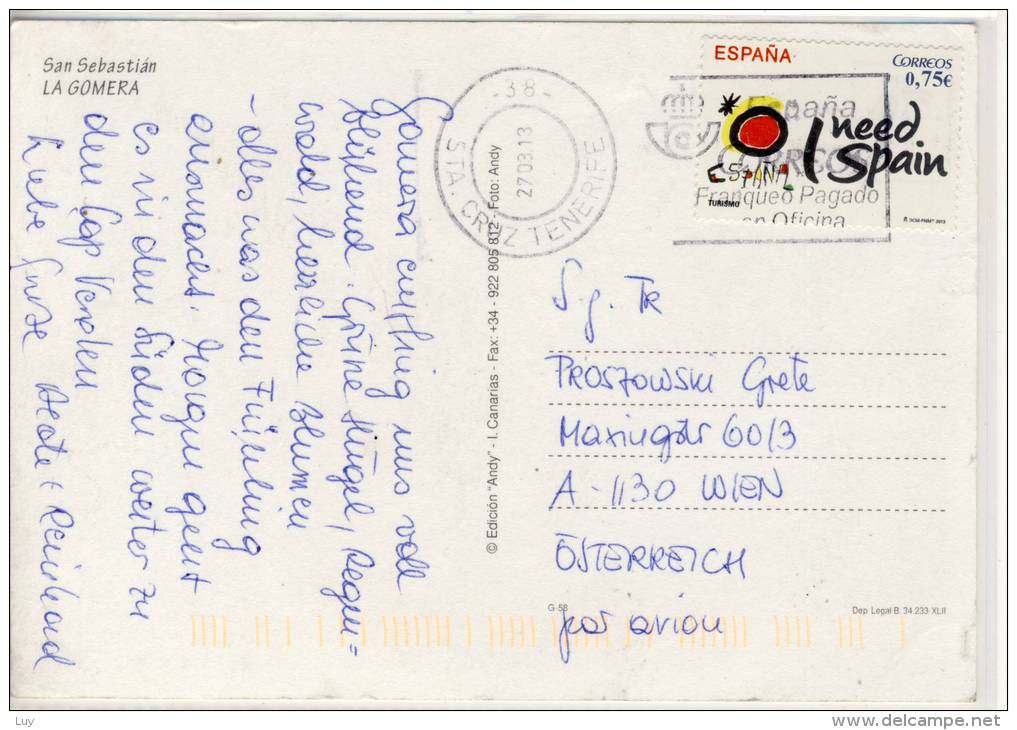 San Sebastián
LA GOMERA
Gomera empfing uns voll
blühend. Grüne Hügel, Regen=
wald, herrliche Blumen
- alles was den Frühling
ausmacht. Morgen geht
es in den Süden weiter zu
den Cap Verden
Liebe Grüße Beate + Reinhard
© Edición "Andy" - I. Canarias - Fax: +34 - 922 805 812 - Foto: Andy
-38-
27 03 13
STA. CRUZ TENERIFE
España
CORREOS
Franqueo Pagado
en Oficina
ESPAÑA
CORREOS
0,75€
I need
Spain
ESPAÑA
TURISMO
S.g. Fr
PROSZOWSKI Grete
Maxingstr 60/3
A-1130 WIEN
ÖSTERREICH
par avion
G-58
Dep Legal B. 34.233-XLII
Luy
www.delcampe.net